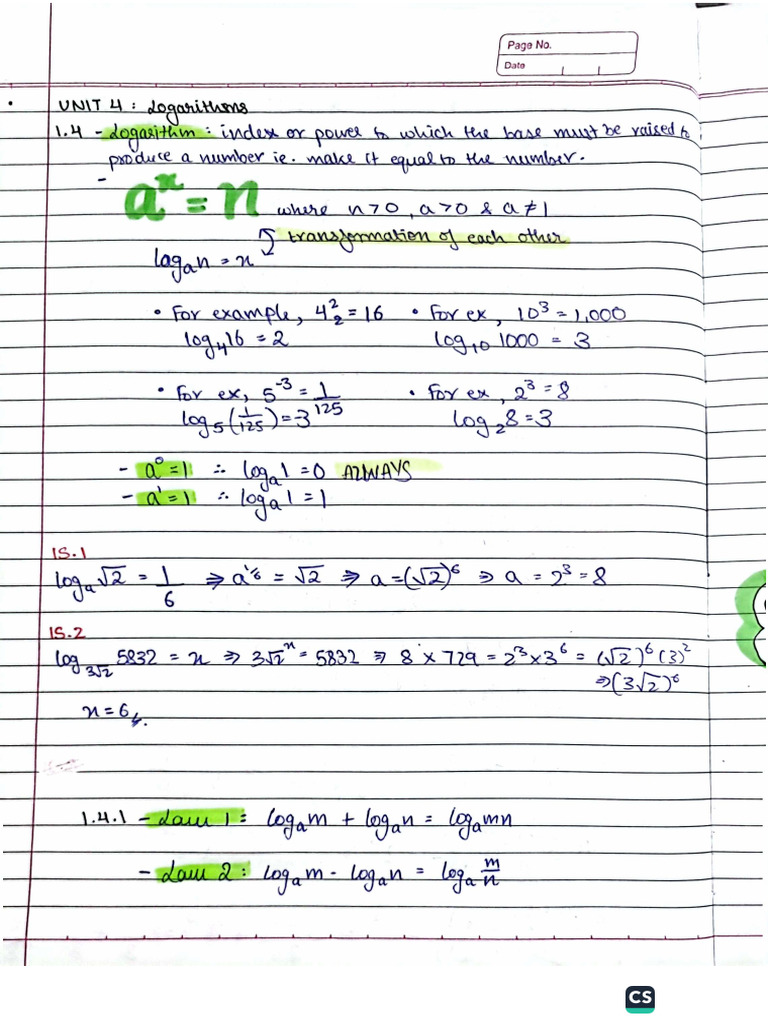 Page No.
Date
UNIT 4 : Logarithms
1.4 - Logarithm : index or power to which the base must be raised to
produce a number ie. make it equal to the number.
- aˣ = n where n>0, a>0 & a≠1
transformation of each other
logₐn = x
• For example, 4²₂ = 16 • For ex, 10³ = 1,000
log₄16 = 2 log₁₀ 1000 = 3
• For ex, 5⁻³ = 1/125 • For ex, 2³ = 8
log₅(1/125) = -3 log₂8 = 3
- a⁰ = 1 ∴ logₐ1 = 0 ALWAYS
- a¹ = 1 ∴ logₐ1 = 1
IS.1
logₐ√2 = 1/6 ⇒ a^1/6 = √2 ⇒ a = (√2)⁶ ⇒ a = 2³ = 8
IS.2
log_3√2 5832 = x ⇒ 3√2ˣ = 5832 ⇒ 8 × 729 = 2³ × 3⁶ = (√2)⁶ (3)²
⇒ (3√2)⁶
x = 6
1.4.1 - Law 1 : logₐm + logₐn = logₐmn
- Law 2 : logₐm - logₐn = logₐ m/n
CS